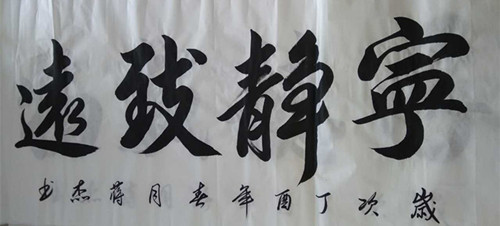 寧静致遠
歲次丁酉年春月蔣杰书